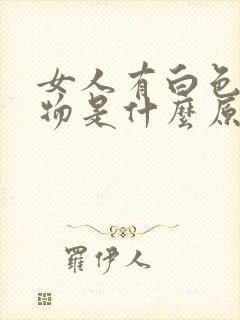 女人有白色
物是什麼原
羅伊人